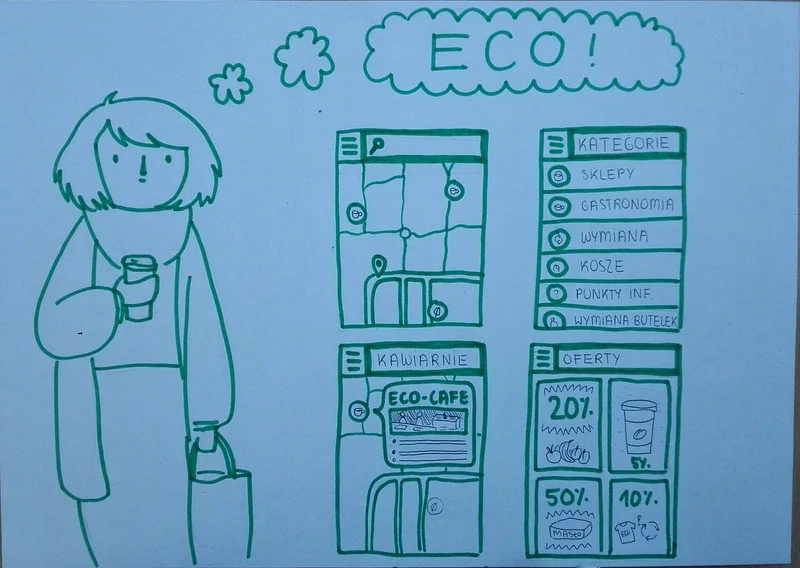 ECO!
KATEGORIE
SKLEPY
GASTRONOMIA
WYMIANA
KOSZE
PUNKTY INF.
WYMIANA BUTELEK
KAWIARNIE
ECO-CAFE
OFERTY
20%
5%
50%
MASŁO
10%
ECO